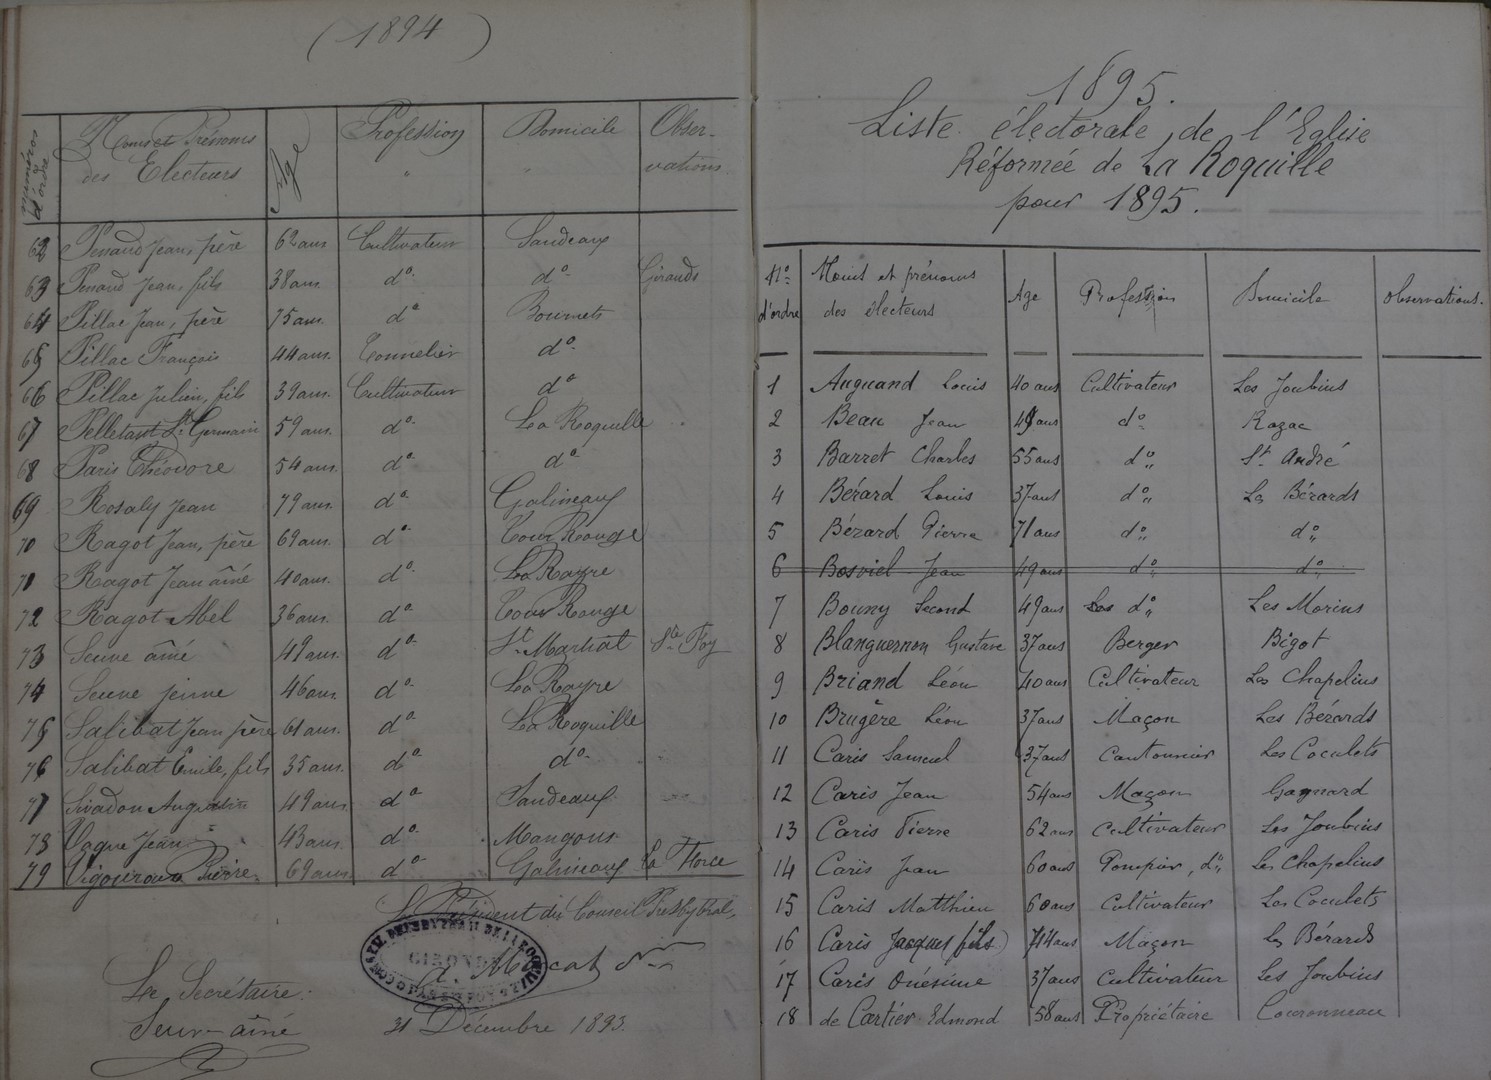 (1894)
numéros d'ordre | Noms et Prénoms des Electeurs | Age | Profession | Domicile | Observations
62 Penaud Jean, père 62 ans Cultivateur Sandeaux
63 Penaud Jean, fils 38 ans. do. do. Girauds
64 Pillac Jean, père 75 ans. do Bournets
65 Pillac François 44 ans. Tonnelier do.
66 Pillac Julien, fils 39 ans. Cultivateur do
67 Pelletant St. Germain 59 ans. do. La Roquille
68 Paris Théodore 54 ans. do. do.
69 Rosaly Jean 79 ans. do. Galineaux
70 Ragot Jean, père 69 ans. do. Tour Rouge
71 Ragot Jean âiné 40 ans. do. La Rayre
72 Ragot Abel 36 ans. do. Tour Rouge
73 Seuve âiné 49 ans. do. St. Martial Ste. Foy
74 Seuve jeune 46 ans. do. La Rayre
75 Salibat Jean père 61 ans. do. La Roquille
76 Salibat Emile, fils 35 ans. do do.
77 Sivadon Augustin 49 ans. do Sandeaux
78 Vogue Jean 43 ans. do. Mangons
79 Vigouroux Pierre. 69 ans. do. Galineaux La Force
Le Président du Conseil Presbytéral,
GIRONDE
Le Secrétaire.
Seuve âiné
31 Décembre 1893.
1895.
Liste électorale de l'Eglise
Réformée de La Roquille
pour 1895.
No. d'ordre | Noms et prénoms des électeurs | Age | Profession | Domicile | Observations.
1 Auguand Louis 40 ans Cultivateur Les Joubins
2 Beau Jean 49 ans do. Razac
3 Barret Charles 55 ans do St. André
4 Bérard Louis 37 ans do Les Bérards
5 Bérard Pierre 71 ans do do
6 Bosviel Jean 49 ans do do
7 Bouny Second 49 ans do Les Morins
8 Blanguernon Gustave 37 ans Berger Bigot
9 Briand Léon 40 ans Cultivateur Les Chapelins
10 Brugère Léon 37 ans Maçon Les Bérards
11 Caris Samuel 37 ans Cantonnier Les Coculets
12 Caris Jean 54 ans Maçon Gagnard
13 Caris Pierre 62 ans Cultivateur Les Joubins
14 Caris Jean 60 ans Pompier, do Les Chapelins
15 Caris Matthieu 60 ans Cultivateur Les Coculets
16 Caris Jacques (fils) 44 ans Maçon Les Bérards
17 Caris Onésime 37 ans Cultivateur Les Joubins
18 de Cartier Edmond 58 ans Propriétaire Couronneau